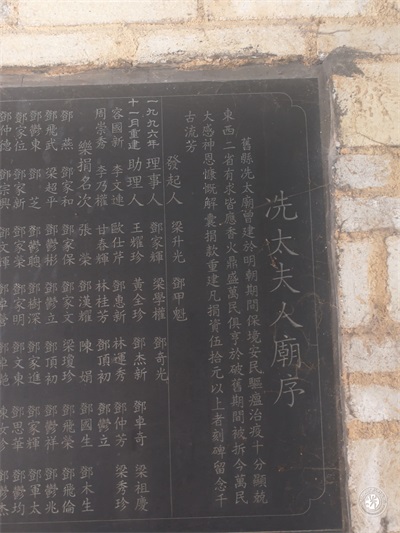 冼太夫人廟序
舊縣冼太廟曾建於明朝期間保境安民驅瘟治疫十分顯兢
東西二省有求皆應香火鼎盛萬民俱亨於破舊期間被拆今萬民
大感神恩慷慨解囊捐款重建凡捐資伍拾元以上者刻碑留念千
古流芳
發起人 梁升光 鄧甲魁
理事人 鄧家輝 梁學權 鄧奇光
助理人 王耀珍 黃金珍 鄧杰新 鄧卓奇 梁祖慶
一九九六年
十一月重建
李文連 歐仕芹 鄧惠新 林運秀 鄧仲芳 梁秀珍
容國新 李乃權 甘春輝 林桂芳 鄧頂初 鄧鬱立
周崇秀
樂捐名次 張榮 鄧漢耀 陳娟 鄧國生 鄧木生
鄧燕 鄧家和 鄧家保 鄧家文 梁瓊珍 鄧飛榮 鄧飛倫
鄧飛武 梁超平 鄧鬱彬 鄧鬱立 鄧頂初 鄧鬱祥 鄧鬱兆
鄧鬱東 鄧芝 鄧鬱聰 鄧樹深 鄧家進 鄧家輝 鄧軍太
鄧家位 鄧家新 鄧家榮 鄧家明 鄧文東 鄧思華 鄧鬱均
鄧仲德 鄧宗興 鄧文輝